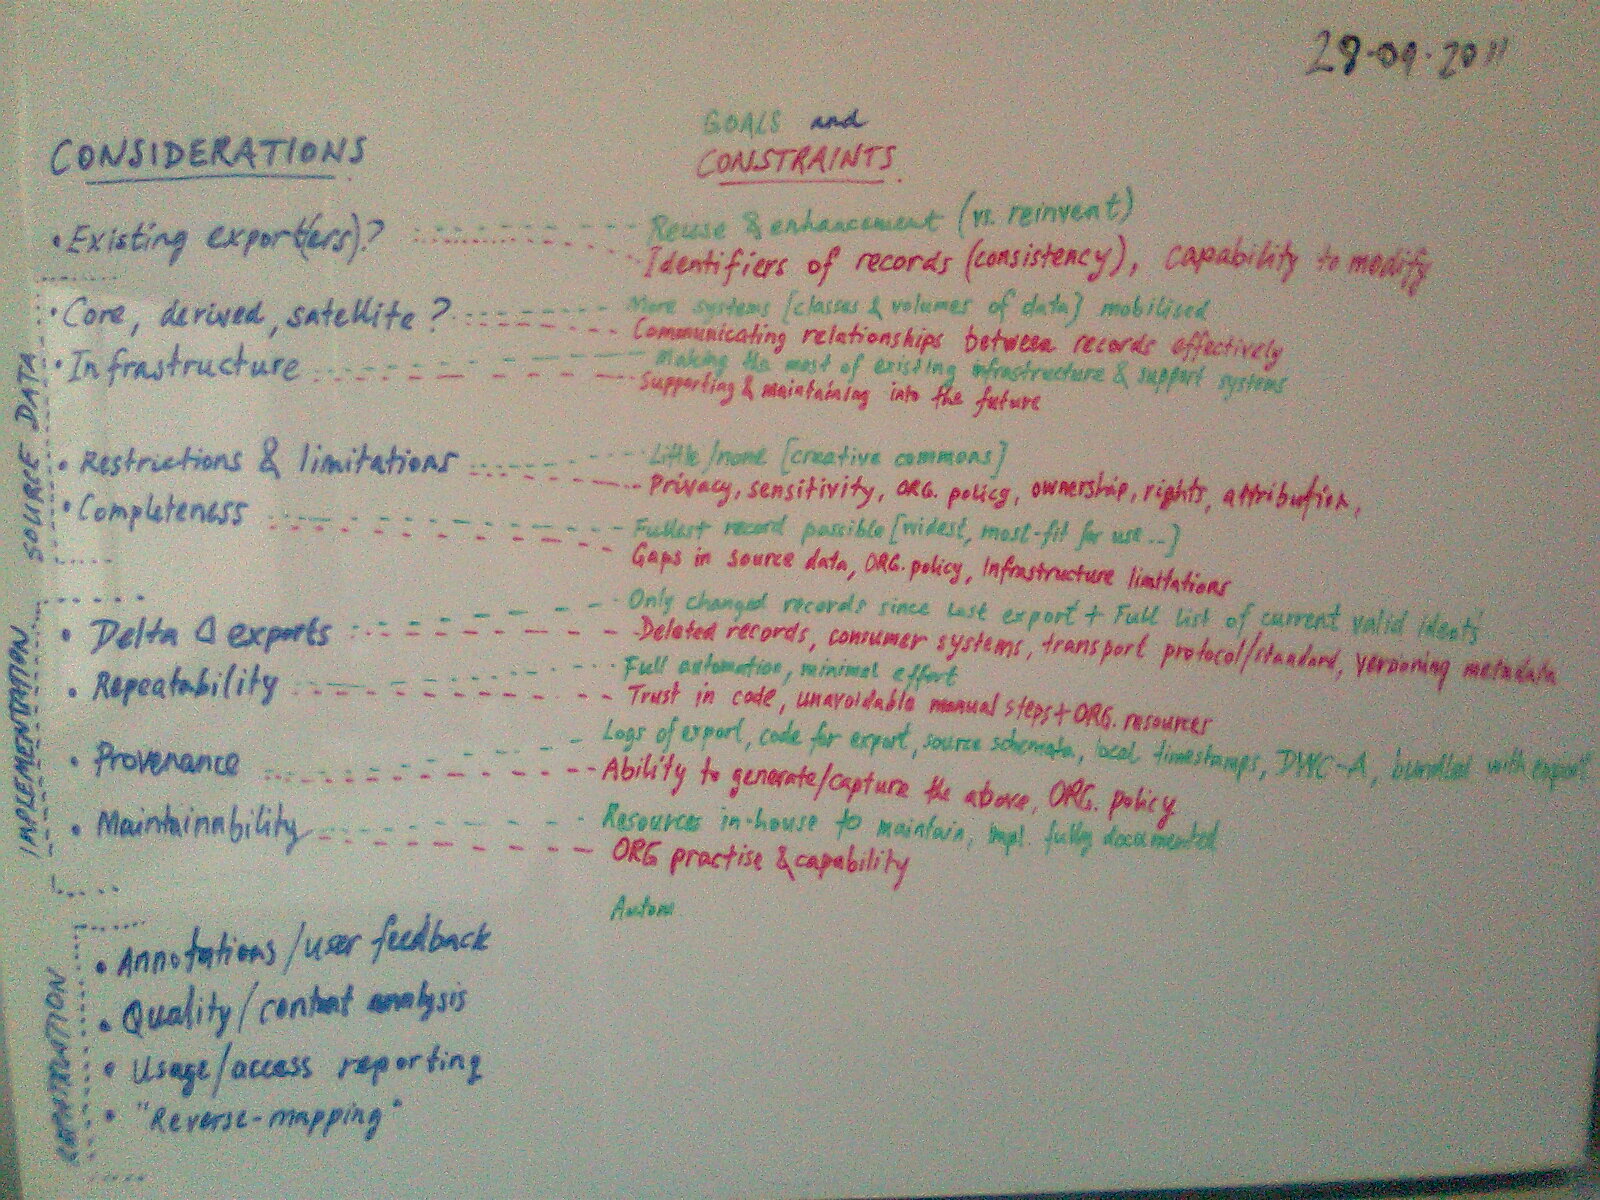 28-09-2011
CONSIDERATIONS
GOALS and
CONSTRAINTS
• Existing export(ers)?
Reuse & enhancement (vs. reinvent)
Identifiers of records (consistency), capability to modify
SOURCE DATA
• Core, derived, satellite?
More systems [classes & volumes of data] mobilised
Communicating relationships between records effectively
• Infrastructure
Making the most of existing infrastructure & support systems
Supporting & maintaining into the future
• Restrictions & limitations
Little/none [creative commons]
Privacy, sensitivity, ORG. policy, ownership, rights, attribution,
• Completeness
Fullest record possible [widest, most-fit for use...]
Gaps in source data, ORG. policy, Infrastructure limitations
IMPLEMENTATION
• Delta Δ exports
Only changed records since last export + Full list of current valid idents
Deleted records, consumer systems, transport protocol/standard, versioning metadata
• Repeatability
Full automation, minimal effort
Trust in code, unavoidable manual steps + ORG. resources
• Provenance
Logs of export, code for export, source schemata, local timestamps, DWC-A, bundled with export
Ability to generate/capture the above, ORG. policy
• Maintainability
Resources in-house to maintain, impl. fully documented
ORG practise & capability
Autom
• Annotations/user feedback
• Quality/content analysis
• Usage/access reporting
• "Reverse-mapping"